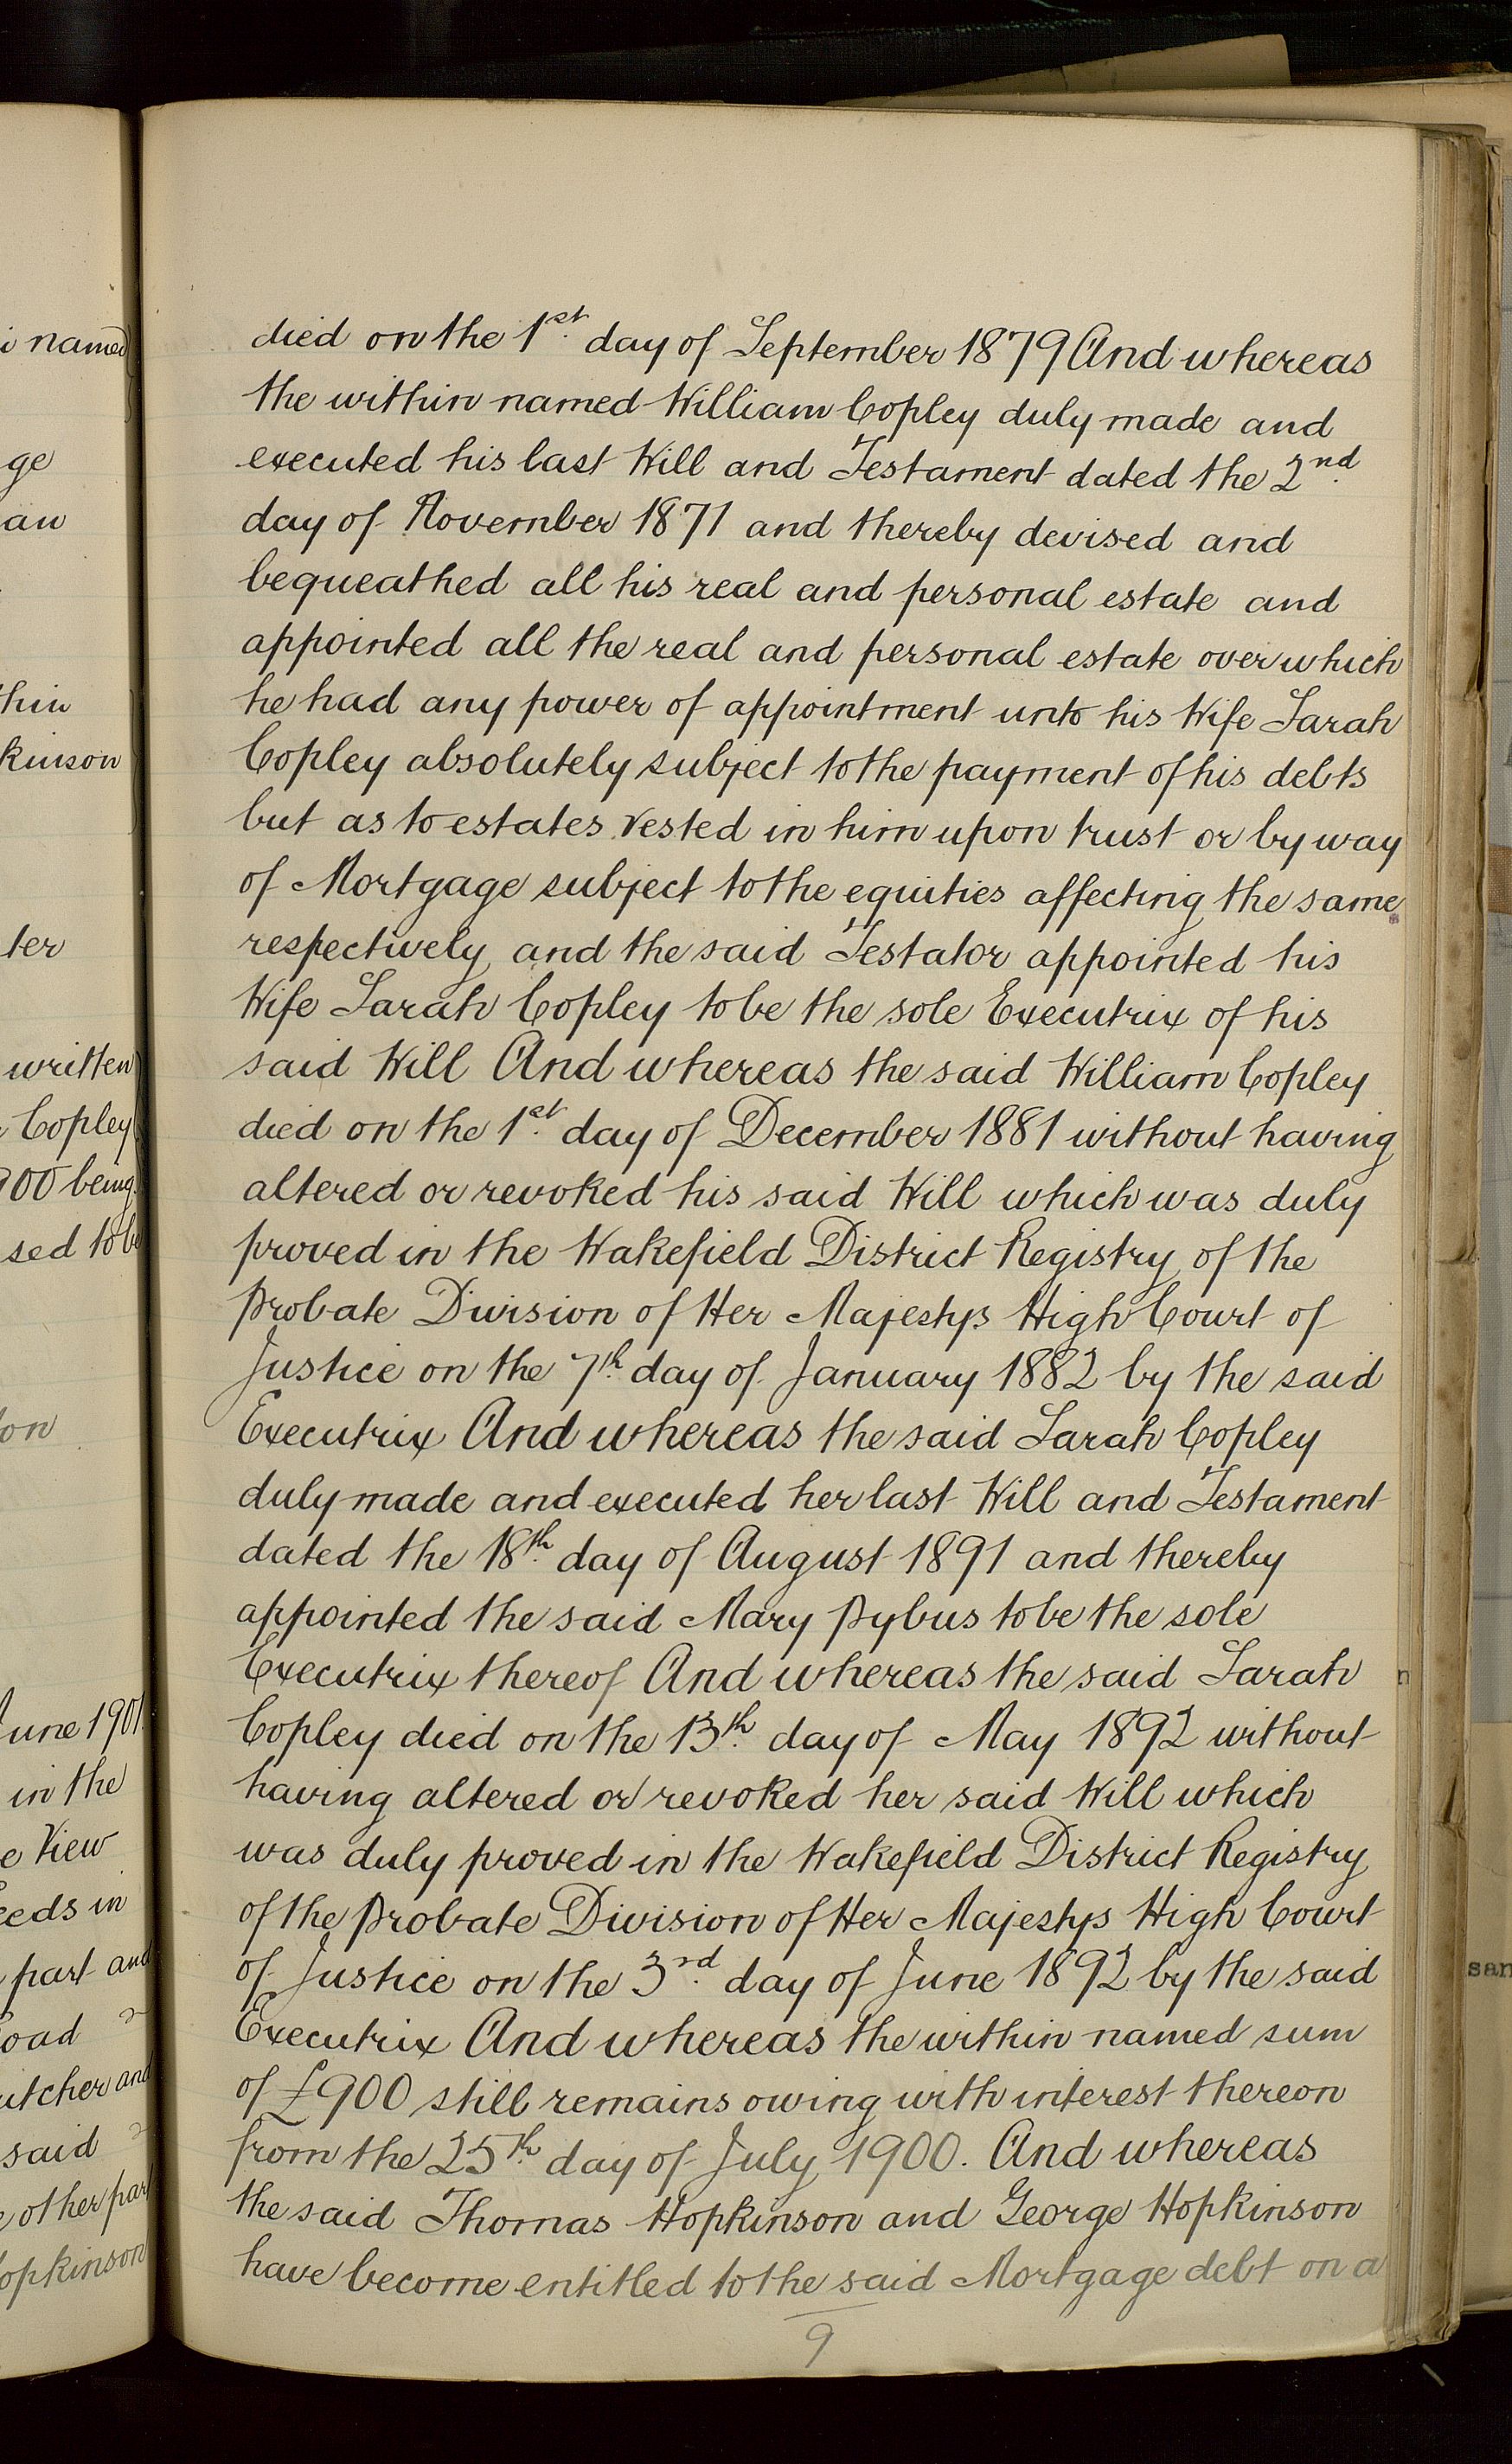 i named
ge
an
thin
kinson
ter
written
Copley
900 being
sed to be
on
June 1901
in the
e View
eeds in
part and
oad
utcher and
said
e other part
opkinson
died on the 1st. day of September 1879 And whereas
the within named William Copley duly made and
executed his last Will and Testament dated the 2nd.
day of November 1871 and thereby devised and
bequeathed all his real and personal estate and
appointed all the real and personal estate over which
he had any power of appointment unto his Wife Sarah
Copley absolutely subject to the payment of his debts
but as to estates vested in him upon trust or by way
of Mortgage subject to the equities affecting the same
respectively and the said Testator appointed his
Wife Sarah Copley to be the sole Executrix of his
said Will And whereas the said William Copley
died on the 1st. day of December 1881 without having
altered or revoked his said Will which was duly
proved in the Wakefield District Registry of the
Probate Division of Her Majestys High Court of
Justice on the 7th. day of January 1882 by the said
Executrix And whereas the said Sarah Copley
duly made and executed her last Will and Testament
dated the 18th. day of August 1891 and thereby
appointed the said Mary Pybus to be the sole
Executrix thereof And whereas the said Sarah
Copley died on the 13th. day of May 1892 without
having altered or revoked her said Will which
was duly proved in the Wakefield District Registry
of the Probate Division of Her Majestys High Court
of Justice on the 3rd. day of June 1892 by the said
Executrix And whereas the within named sum
of £900 still remains owing with interest thereon
from the 25th. day of July 1900. And whereas
the said Thomas Hopkinson and George Hopkinson
have become entitled to the said Mortgage debt on a
9
san